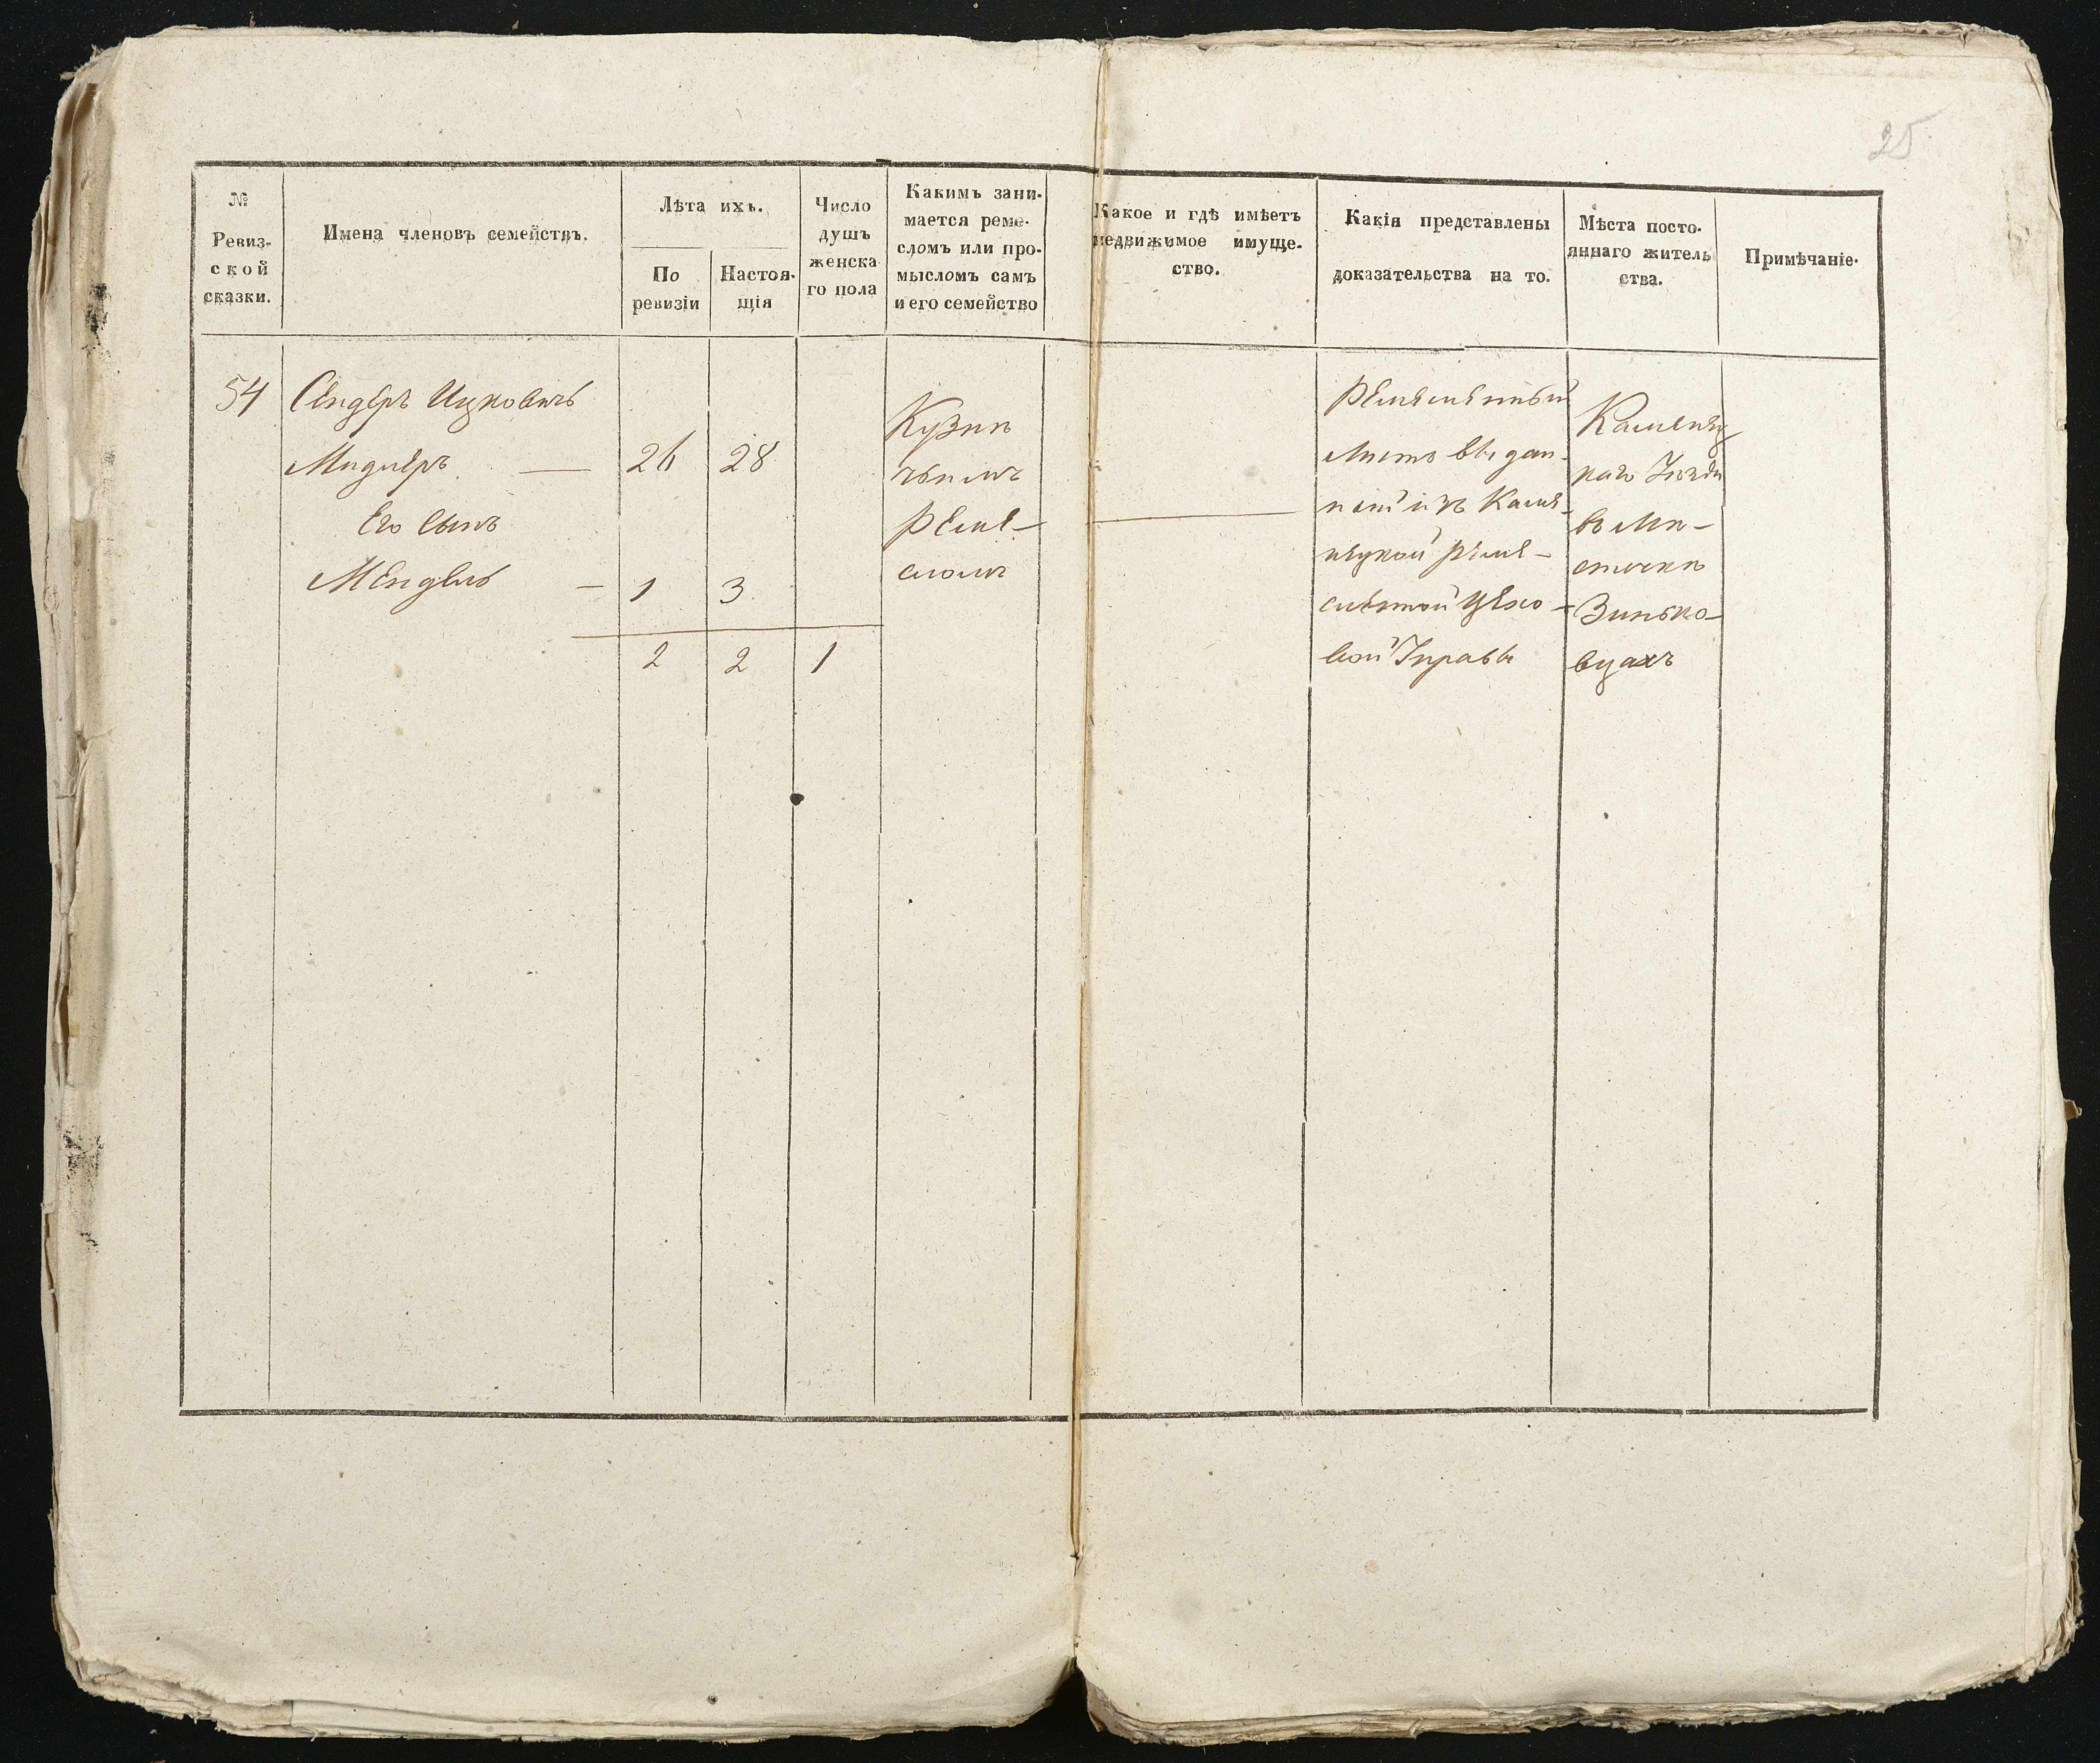 25
№
Ревиз-
ской
сказки.
Имена членовъ семействъ.
Лѣта ихъ.
По
ревизіи
Настоя-
щія
Число
душъ
женска
го пола
Какимъ зани-
мается реме-
сломъ или про-
мысломъ самъ
и его семейство
Какое и гдѣ имѣетъ
недвижимое имуще-
ство.
Какія представлены
доказательства на то.
Мѣста посто-
яннаго житель
ства.
Примѣчаніе.
54 Сендеръ Ицковичъ
Мидлеръ — 26 28
Его сынъ
Мендель — 1 3
2 2 1
Кузне
чнымъ
реме-
сломъ
Ремесленный
листъ выдан-
ной изъ Каме-
нецкой реме-
сленной цехо-
вой Управы
Каменец
каго Уезда
въ Ме-
стечке
Зинько-
вцахъ